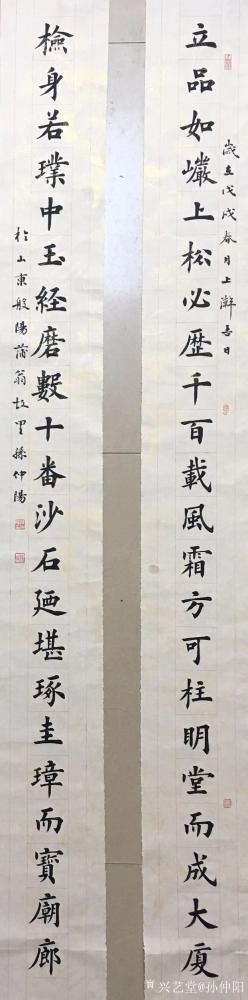 立品如巘上松必歷千百載風霜方可柱明堂而成大廈
歲在戊戌春月上澣吉日
檢身若璞中玉經磨數十番沙石廼堪琢圭璋而寶廟廊
於山東般陽蒲翁故里孫仲陽
兴艺堂@孙仲阳